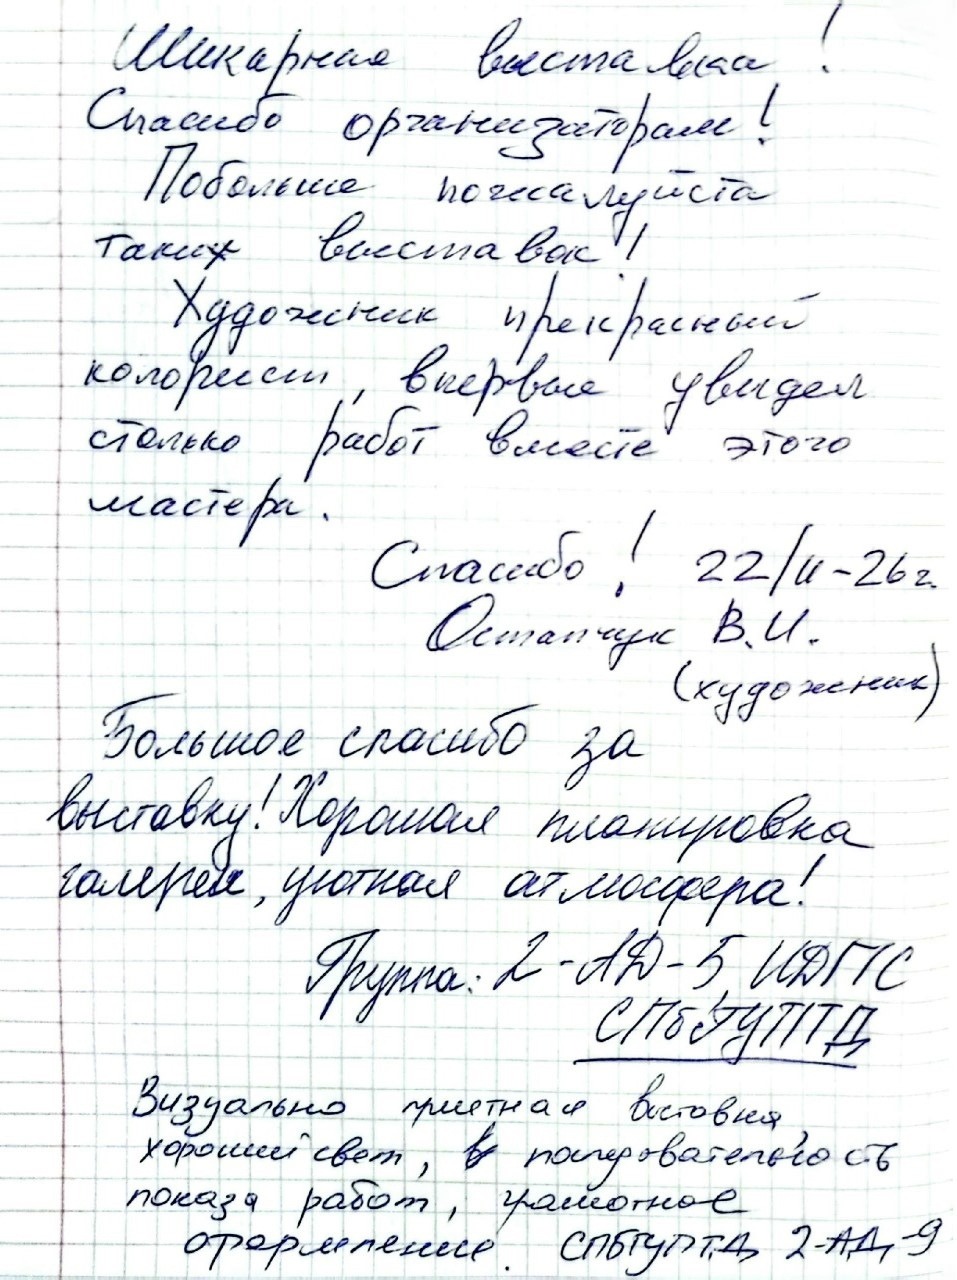 Шикарная выставка!
Спасибо организаторам!
Побольше пожалуйста
таких выставок!
Художник прекрасный
колорист, впервые увидел
столько работ вместе этого
мастера.
Спасибо! 22/II-26 г.
Остапчук В.И.
(художник)
Большое спасибо за
выставку! Хорошая планировка
галереи, уютная атмосфера!
Группа: 2-АД-5, ИДПС
СПбГУПТД
Визуально приятная выставка,
хороший свет, последовательность
показа работ, грамотное
оформление. СПБГУПТД 2-АД-9